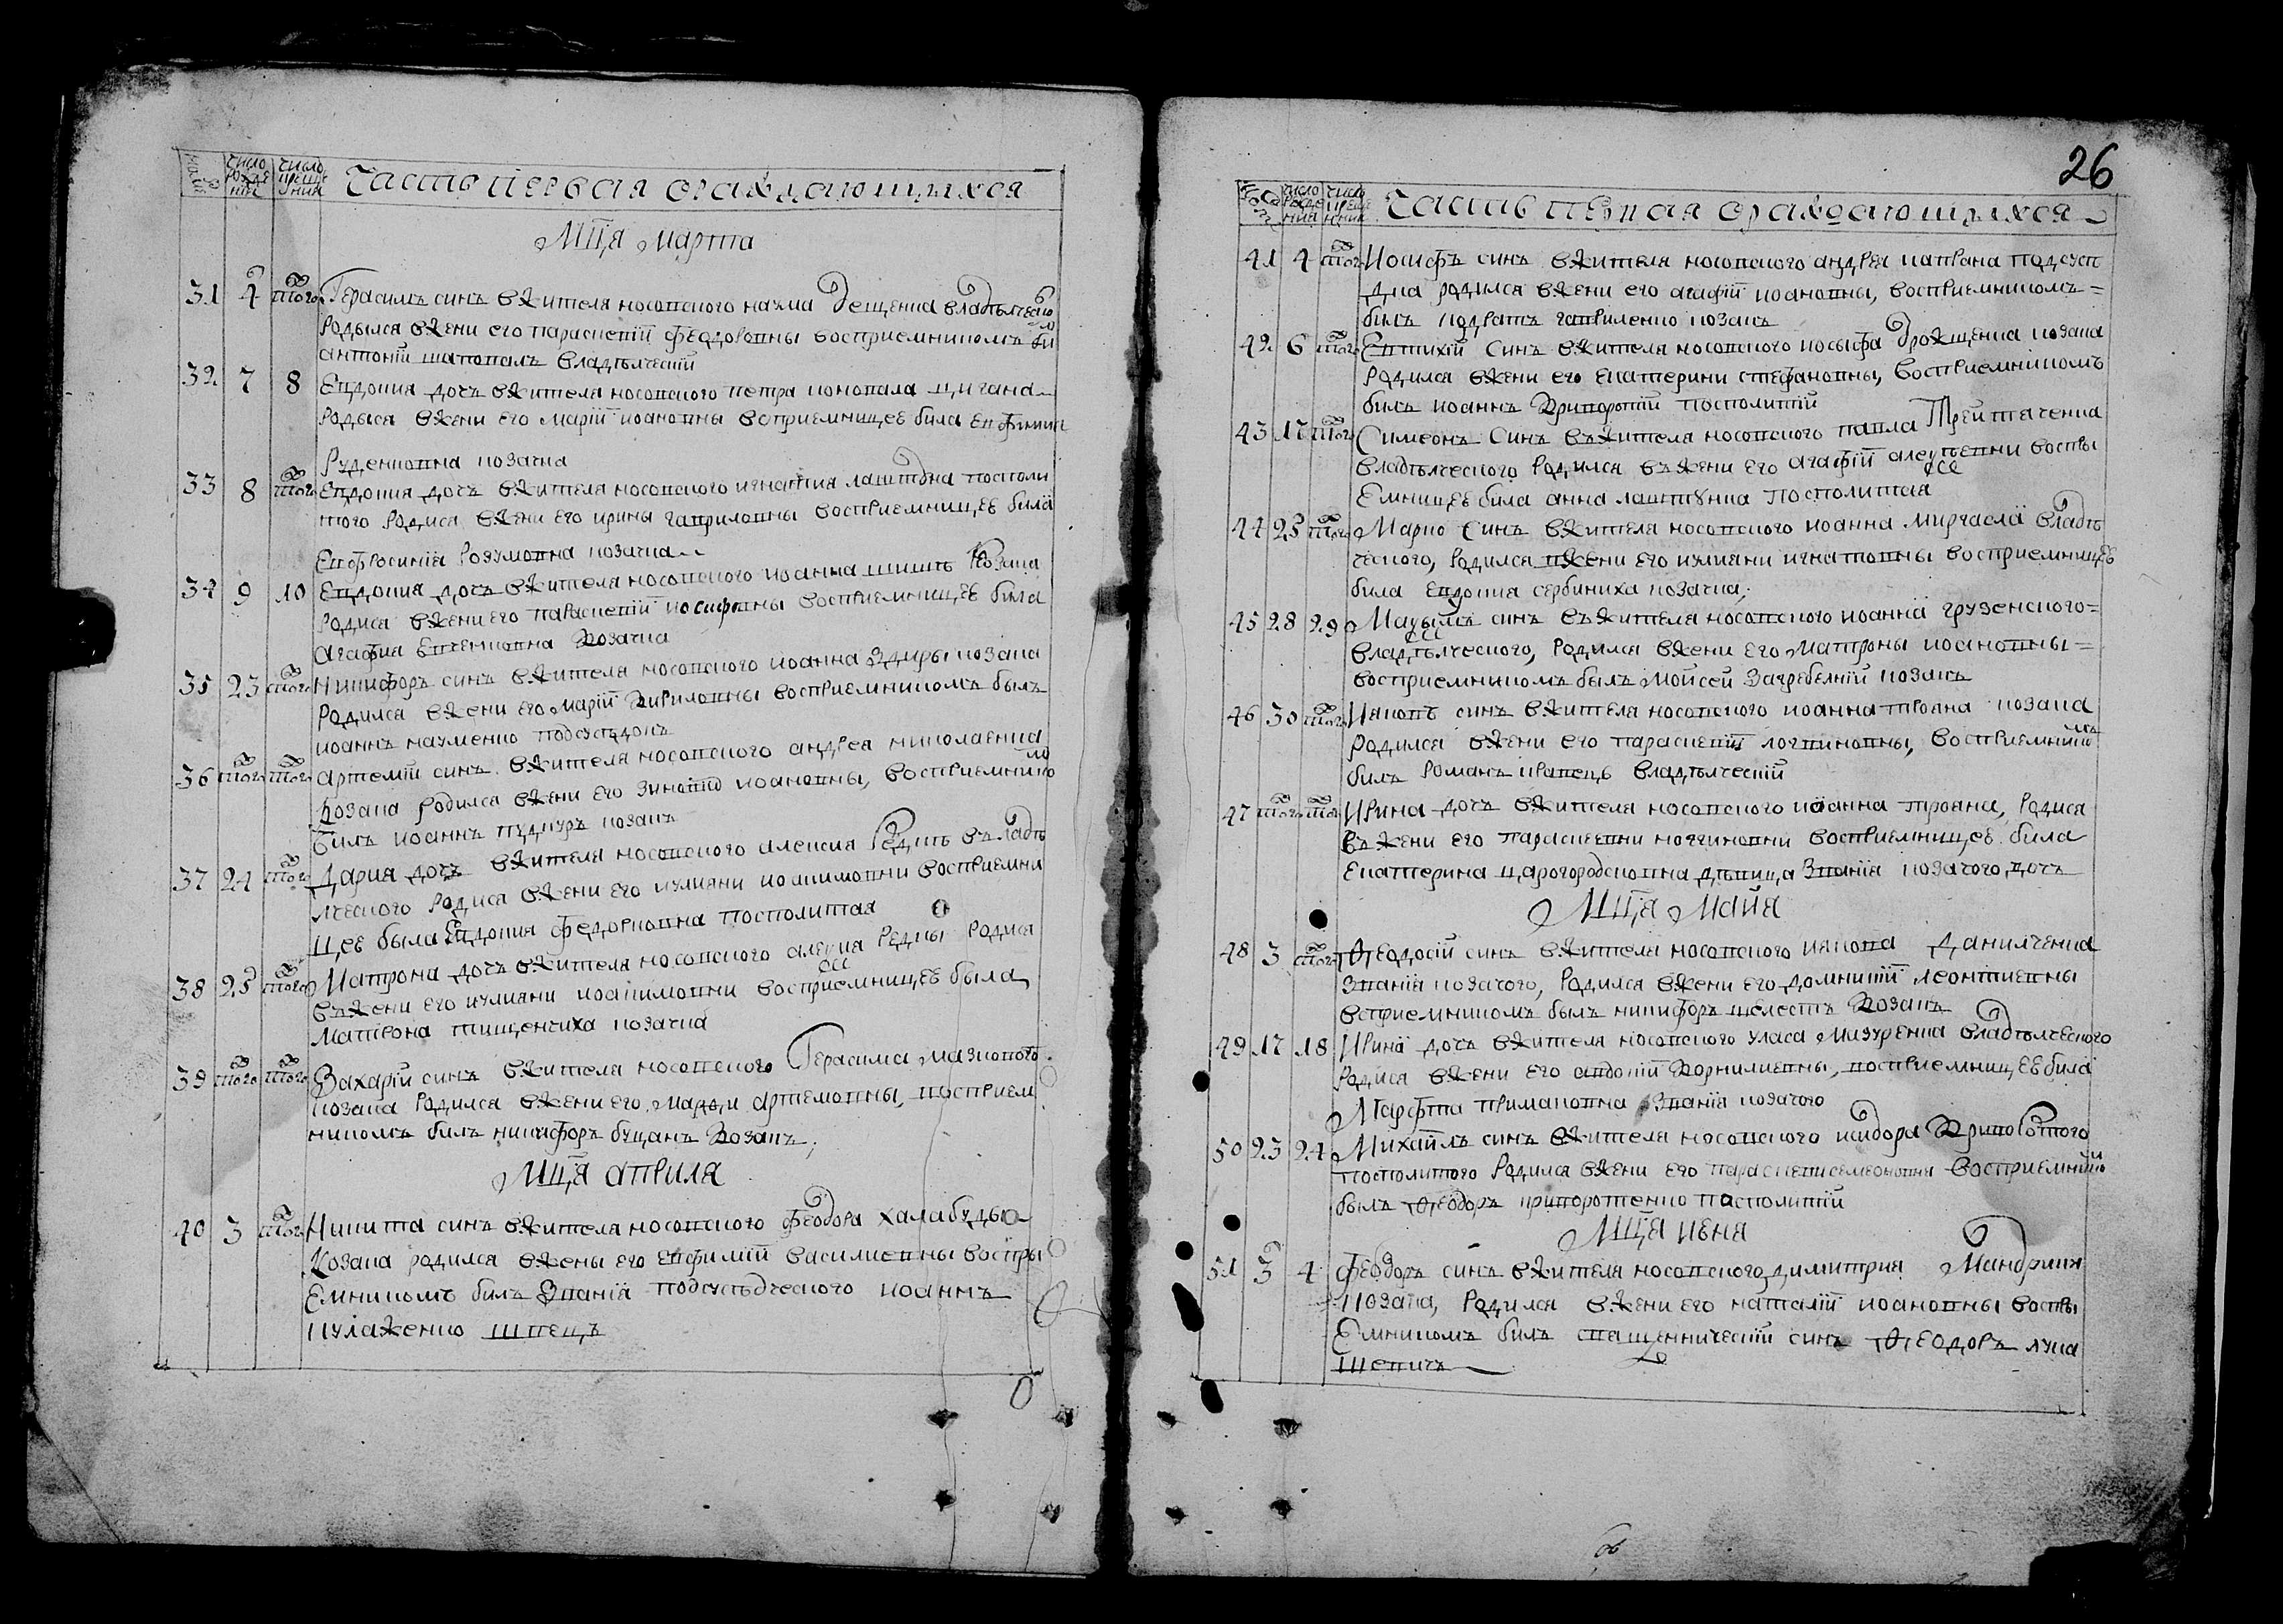 число рожде ния
число креще ния
Часть первая ораждающихся
Мца Марта
31 4 того Герасимъ синъ вжителя носовского наума Дещенка владѣлчеко
родылся вжени его параскевіи феодоровны восприемникомъ би
антоній шаповалъ владѣлческій
32 7 8 Евдокия дочъ вжителя носовского петра коновала цигана
родыся вжени его маріи иоановны восприемницев била Евфимия
Руденковна козачка
33 8 того Евдокия дочъ вжителя носовского игнатия лаштвна посполи
того родися вжени его ирины гавриловны восприемницев била
Евфросиния Розумовна козачка
34 9 10 Евдокия дочъ вжителя носовского иоанна шишѣ козака
родися вжени его параскевіи иосифовны восприемницев била
агафия Евтенковна козачка
35 23 того Никифоръ синъ вжителя носовского иоанна здиры козака
родился вжени его маріи кириловны восприемникомъ былъ
иоаннъ науменко подсусѣдокъ
36 того того артемій синъ вжителя носовского андрея николаенка
козака родился вжени его зиновіи иоановны, восприемникомъ
билъ иоаннъ пуднуръ козакъ
37 24 того Дария дочъ вжителя носовского алексия редкѣ въладѣ
лческого родися вжени его иулияни иоакимовни восприемни
цев была Евдокия федоровна посполитая
38 25 того Матрона дочъ вжителя носовского алексия редки родися
въжени его иулияни иоакимовни восприемницев была
матрона тищенчиха козачка
39 того того Захарій синъ вжителя носовского Герасима мазкового
козака родился вжени его марфи артемовны, восприем
никомъ билъ никифоръ буцанъ козакъ,
Мца априля
40 3 того Никита синъ вжителя носовского феодора халабуды
козака родился вжены его Евфимій василиевны воспри
емникомъ билъ званія подсусѣдческого иоаннъ
кулаженко швецъ
26
число рожде ния
число креще ния
Часть первая ораждающихся
41 4 того Иосифъ синъ вжителя носовского андрея каврана подсусѣ
дка родился вжени его агафіи иоановны, восприемникомъ
билъ кодратъ гавриленко козакъ
42 6 того Евтихій синъ вжителя носовского иосыфа Дрожщенка козака
родился вжени его Екатерини стефановны, восприемникомъ
билъ иоаннъ криворотій посполитій
43 17 того Симеонъ синъ вжителя носовского павла Трейтяченка
владѣлческого родился въжени его агафіи алексѣевни воспри
емницев била анна лаштунка посполитая
44 25 того Марко синъ вжителя носовского иоанна миргаслі владѣ
ческого, родился вжени его иулияни игнатовны восприемницев
била Евдокия сербиниха козачка,
45 28 29 Маѯымъ синъ въжителя носовского иоанні грузенского
владѣлческого, родился вжени его Матроны иоановны
восприемникомъ былъ мойсей загребелній козакъ
46 30 того Иаковъ синъ вжителя носовского иоанна трояна козака
родился вжени его параскевіи логвиновны, восприемникомъ
билъ романъ кравецъ владѣлческій
47 того того Ирина дочъ вжителя носовского иоанна трояна, родися
въжени его параскевни логвиновни восприемницев била
Екатерина царогородсковна дѣвица званія козачого дочъ
Мца Маия
48 3 того Ѳеодосій синъ вжителя носовского иакова Данилченка
званія козачого, родился вжени его домникіи леонтиевны
встриемникомъ былъ никифоръ шелестъ козакъ
49 17 18 Ирині дочъ вжителя носовского уласа мизуренка владѣлческого
родися вжени его авдокіи корнилиевны, восприемницев била
Марфта примаковна званія козачого
50 23 24 Михаилъ синъ вжителя носовского исидора криворотого
посполитого родился вжени его параскеви семеоновни восприемникомъ
былъ Ѳеодоръ криворотенко посполитій
Мца июня
51 3 4 Феодоръ синъ вжителя носовского димитрия Мандрики
козака, родился вжени его наталіи иоановны воспри
емникомъ билъ священническій синъ Ѳеодоръ лука
шевичъ